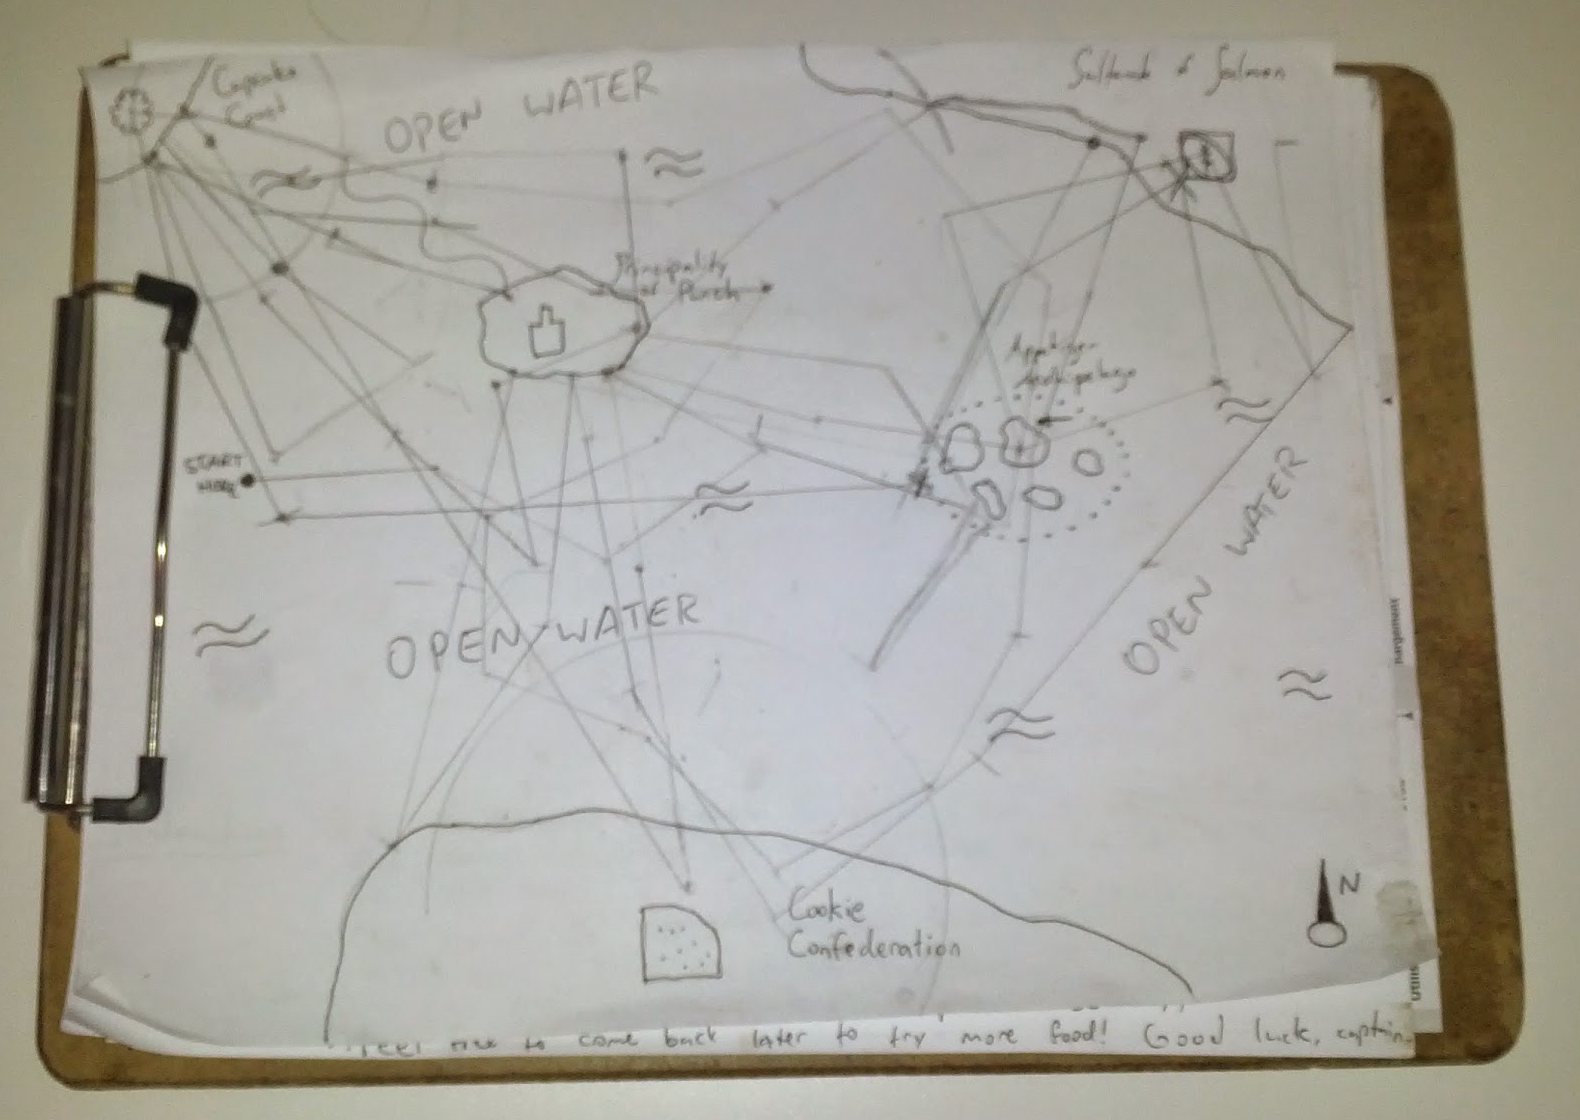 Cupcake
Coast
OPEN WATER
of Salmon
Principality
of Punch
Archipelago
START
HERE
OPEN WATER
OPEN WATER
Cookie
Confederation
N
feel free to come back later to try more food! Good luck, captain.